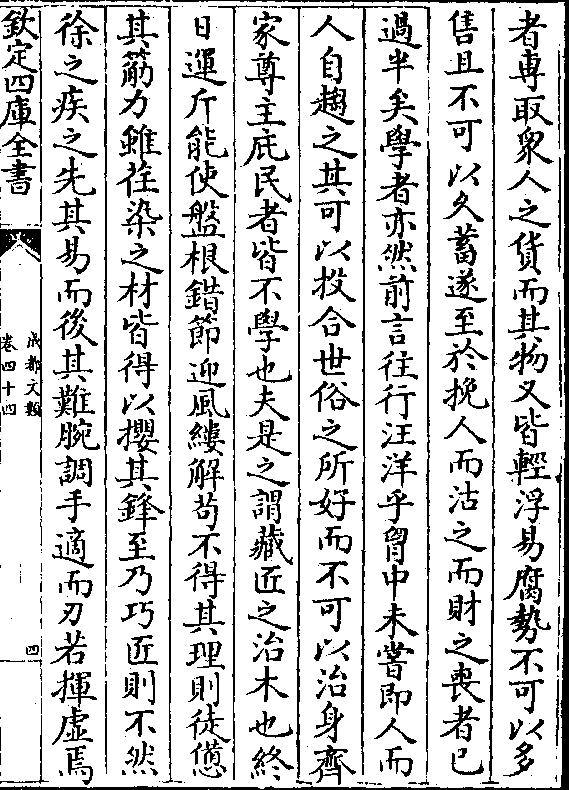 者專取衆人之貨而其物又皆輕浮易腐勢不可以多
售且不可以久蓄遂至於挽人而沽之而財之喪者已
過半矣學者亦然前言徃行汪洋乎胷中未嘗即人而
人自趨之其可以投合世俗之所好而不可以治身齊
家尊主庇民者皆不學也夫是之謂藏匠之治木也終
日運斤能使盤根錯節迎風縷解苟不得其理則徒憊
其筋力雖荏染之材皆得以攖其鋒至乃巧匠則不然
徐之疾之先其易而後其難腕調手適而刃若揮虚焉
欽定四庫全書
成都文類
卷四十四
四